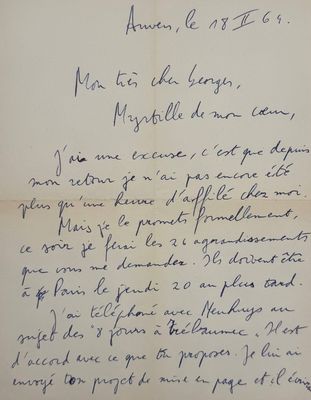 Anvers, le 18 II 64.
Mon très cher Georges,
Myrtille de mon cœur,
J'ai une excuse, c'est que depuis
mon retour je n'ai pas encore été
plus qu'une heure d'affilé chez moi.
Mais je le promets formellement,
ce soir je ferai les 26 agrandissements
que vous me demandez. Ils doivent être
à Paris le jeudi 20 au plus tard.
J'ai téléphoné avec au
sujet des "8 jours à Trébeurnec". Il est
d'accord avec ce que tu proposes. Je lui ai
envoyé ton projet de mise en page et il